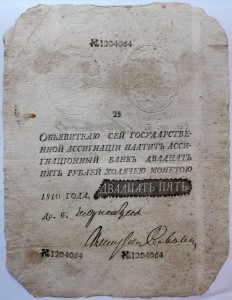 №1204064
25
Объявителю сей государстве-
нной ассигнаціи платитъ асси-
гнаціонный банкъ двадцать
пять рублей ходячею монетою
1810 года. ДВАДЦАТЬ ПЯТЬ
№1204064 №1204064